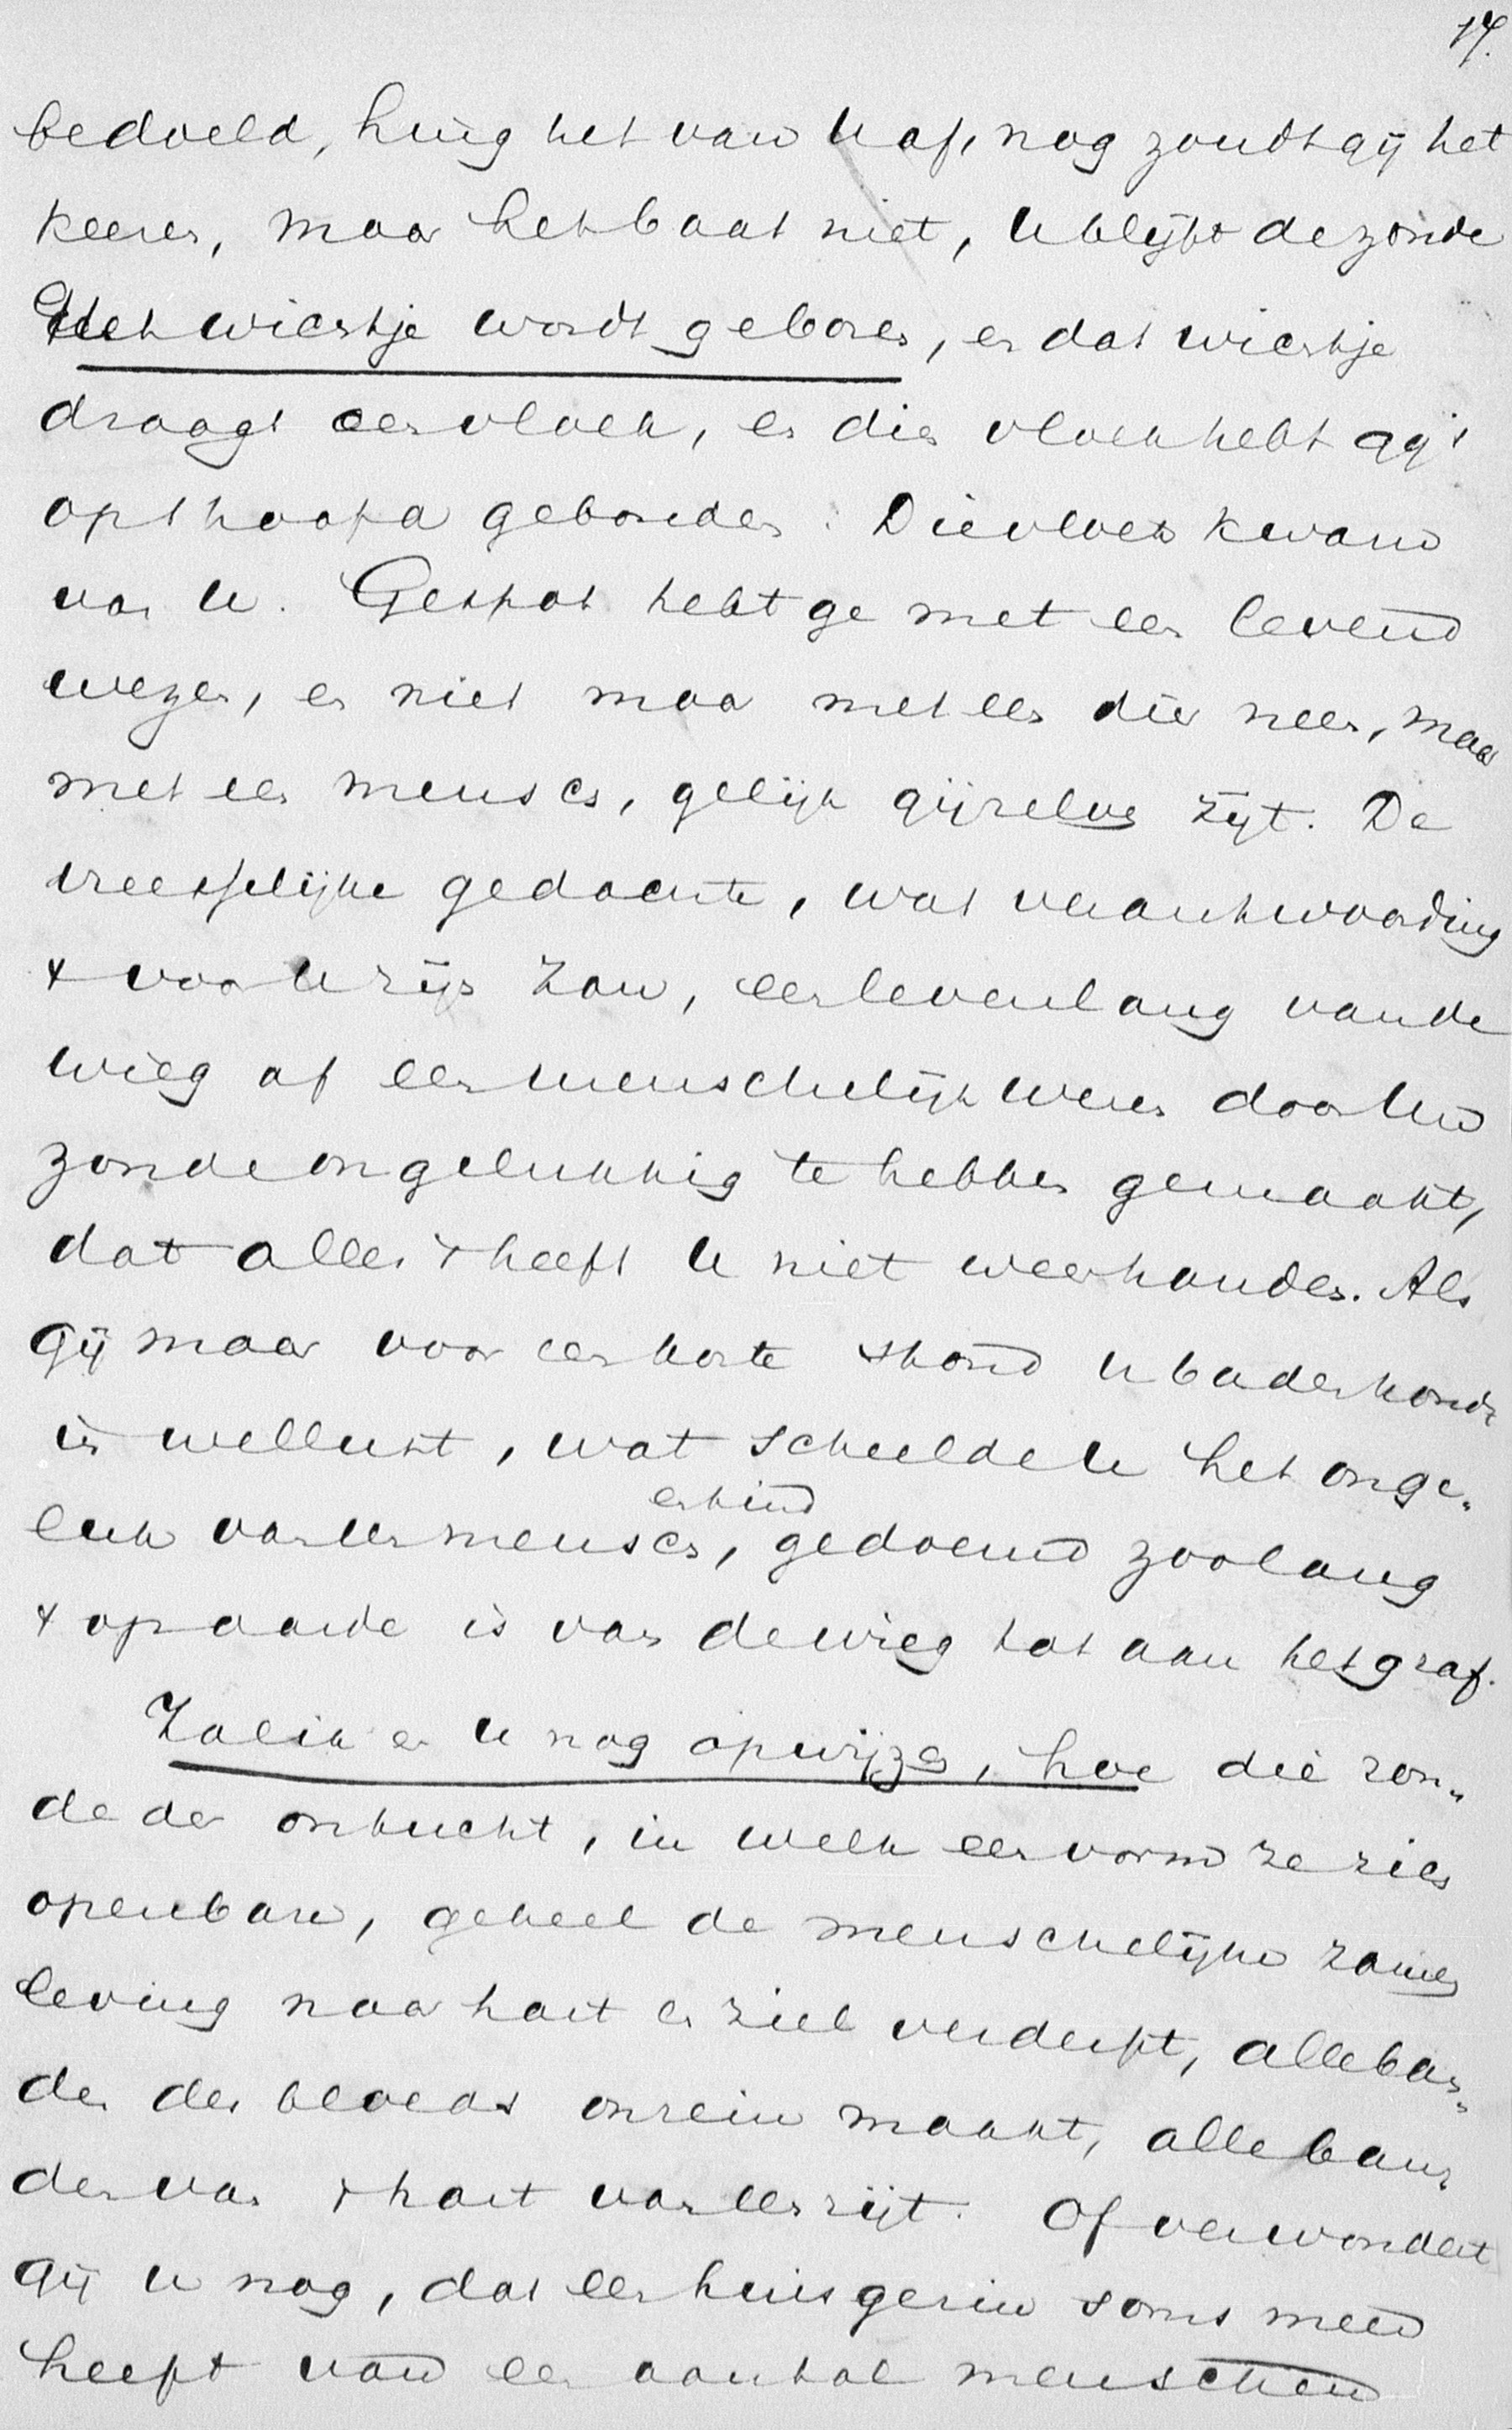 17.
bedoeld, hing het van U af, nog zoudt gij het
keeren, maar het baat niet, U blijft de zonde
Het wichtje wordt geboren, en dat wichtje
draagt een vloek, en dien vloek hebt gij 't
op 't hoofd gebonden. Die vloek kwam
van U. Gespot hebt ge met een levend
wezen, en niet maar met een dier neen, maar
met een mensch, gelijk gij zelve zijt. De
vreesselijke gedachte, wat verantwoording
't voor U zijn zou, een leven lang van de
wieg af een menschelijk wezen door Uw
zonde ongelukkig te hebben gemaakt,
dat alles 't heeft U niet weerhouden. Als
gij maar voor een korte stond U baden kondt
in wellust, wat scheelde U het onge„
luk van een mensch, gedoemd zoolang
en kind
't op aarde is van de wieg tot aan het graf.
Zal ik er U nog op wijzen, hoe die zon„
de der ontucht, in welk een vorm ze zich
openbare, geheel de menschelijke zamen
leving naar hart en ziel verderft, alle ban„
den des bloeds onrein maakt, alle ban„
den van 't hart van een rijt. Of verwondert
gij U nog, dat een huisgezin soms meer
heeft van een aantal menschen